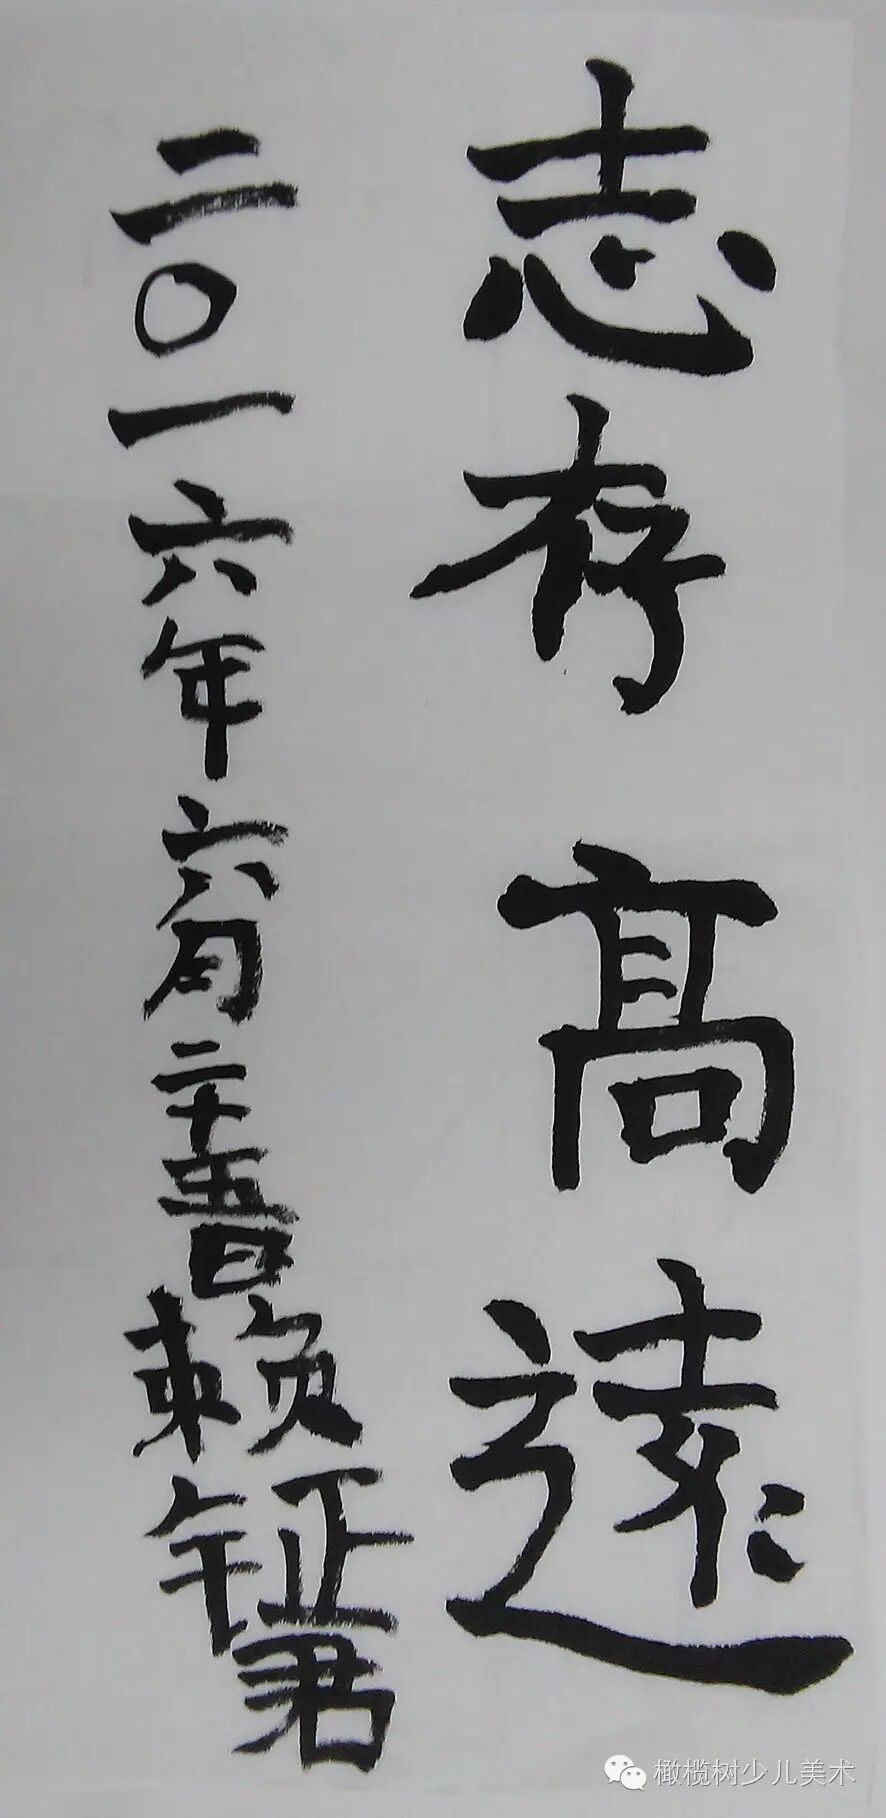 志存髙遠
二〇一六年六月二十五日赖钲君
橄榄树少儿美术